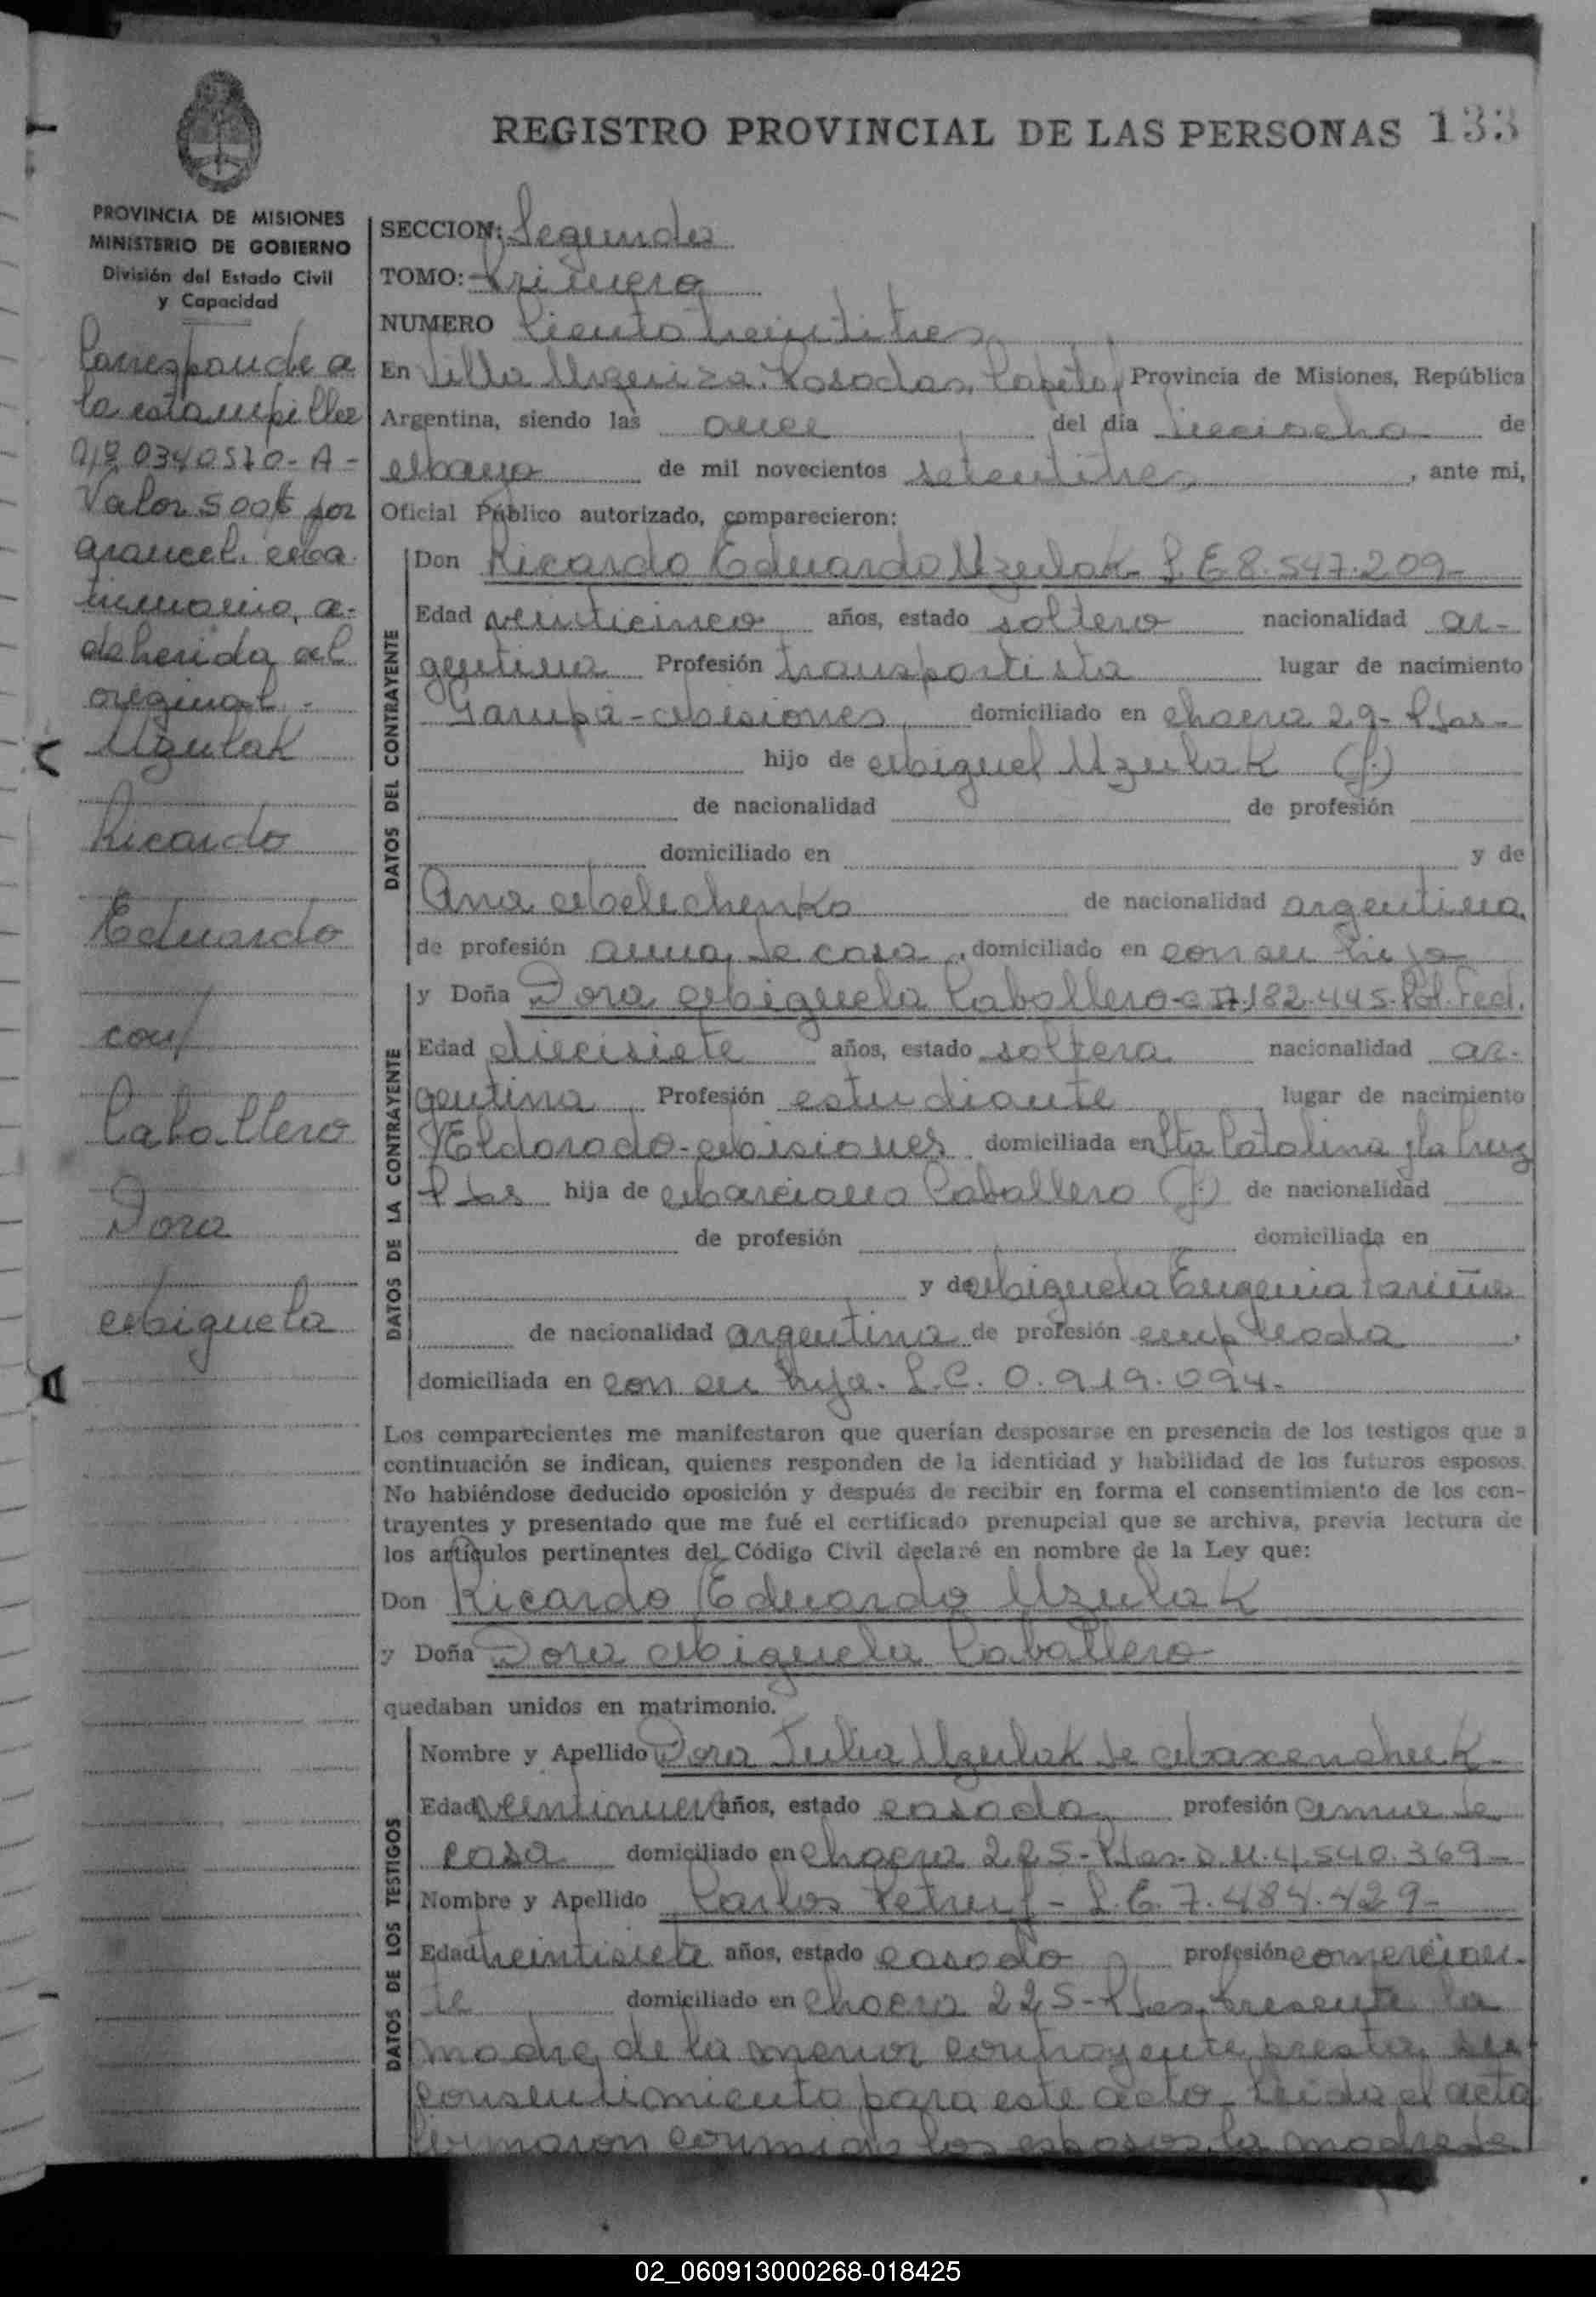 REGISTRO PROVINCIAL DE LAS PERSONAS 133
PROVINCIA DE MISIONES
MINISTERIO DE GOBIERNO
División del Estado Civil
y Capacidad
Corresponde a
la estampilla
Nº 0340510-A-
Valor 500$ por
arancel. ma
trimonio, a-
deherida al
original.-
Uzulak
Ricardo
Eduardo
con/
Caballero
Dora
Miguela
SECCION: Segunda
TOMO: Primero
NUMERO Ciento treintitres
En Villa Urquiza, Posadas, Capital, Provincia de Misiones, República
Argentina, siendo las once del día dieciocho de
mayo de mil novecientos setentitres, ante mi,
Oficial Público autorizado, comparecieron:
DATOS DEL CONTRAYENTE
Don Ricardo Eduardo Uzulak- L.E 8.547.209-
Edad venticinco años, estado soltero nacionalidad ar-
gentina Profesión transportista lugar de nacimiento
Garupá-Misiones domiciliado en chacra 29-Pdas-
hijo de Miguel Uzulak (f.)
de nacionalidad de profesión
domiciliado en y de
Ana Melechenko de nacionalidad argentina,
de profesión ama de casa, domiciliado en con su hijo
DATOS DE LA CONTRAYENTE
y Doña Dora Miguela Caballero- 182.445-Pol. Fed.
Edad diecisiete años, estado soltera nacionalidad ar-
gentina Profesión estudiante lugar de nacimiento
Eldorado-Misiones domiciliada en Sta Catalina y la Cruz
Pdas hija de Marciano Caballero (f.) de nacionalidad
de profesión domiciliada en
y de Miguela Eugenia Fariña
de nacionalidad argentina de profesión empleada,
domiciliada en con su hija. L.C. 0.919.094.
Los comparecientes me manifestaron que querían desposarse en presencia de los testigos que a
continuación se indican, quienes responden de la identidad y habilidad de los futuros esposos.
No habiéndose deducido oposición y después de recibir en forma el consentimiento de los con-
trayentes y presentado que me fué el certificado prenupcial que se archiva, previa lectura de
los artículos pertinentes del Código Civil declaré en nombre de la Ley que:
Don Ricardo Eduardo Uzulak
y Doña Dora Miguela Caballero
quedaban unidos en matrimonio.
DATOS DE LOS TESTIGOS
Nombre y Apellido Dora Julia Uzulak de
Edad ventinueve años, estado casada profesión ama de
casa domiciliado en chacra 225-Pdas-D.U. 4.540.369-
Nombre y Apellido Carlos - L.E. 7.484.429-
Edad treintisiete años, estado casado profesión comercian-
te domiciliado en chacra 225-Pdas, presente la
madre de la menor contrayente presta su
consentimiento para este acto- leida el acta
firmaron conmigo los esposos, la madre de
02_060913000268-018425